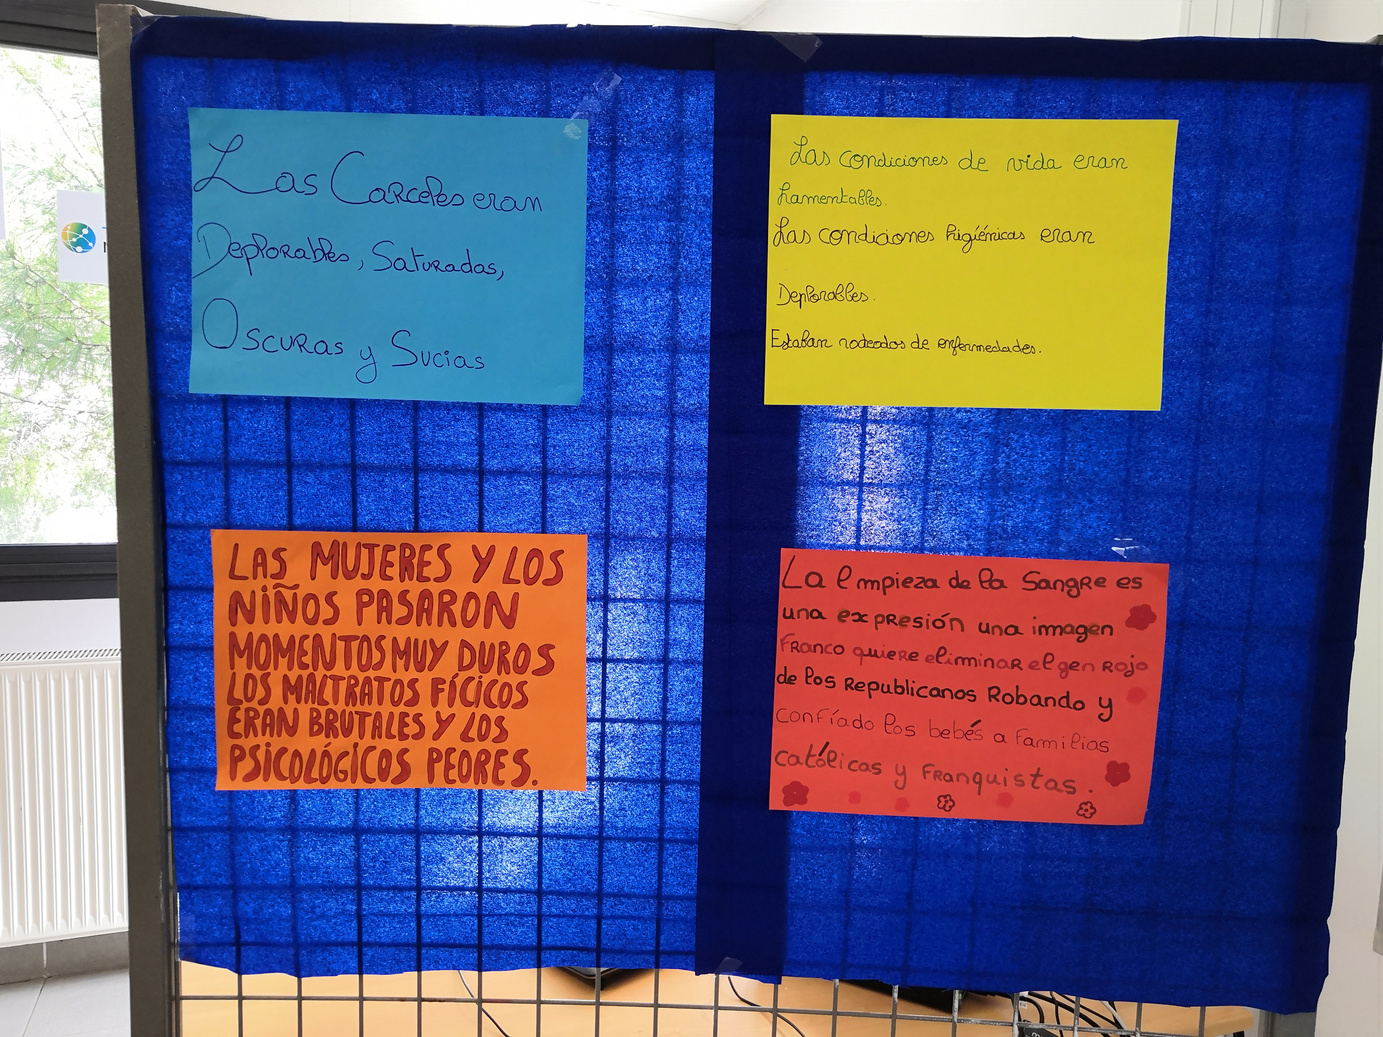 Las Carceles eran
Deplorables, Saturadas,
Oscuras y Sucias
Las condiciones de vida eran
Lamentables.
Las condiciones higiénicas eran
Deplorables.
Estaban rodeados de enfermedades.
LAS MUJERES Y LOS
NIÑOS PASARON
MOMENTOS MUY DUROS
LOS MALTRATOS FÍCICOS
ERAN BRUTALES Y LOS
PSICOLÓGICOS PEORES.
La lmpieza de la Sangre es
una expresión una imagen
Franco quiere eliminar el gen rojo
de los Republicanos Robando y
confíado los bebés a familias
católicas y Franquistas.